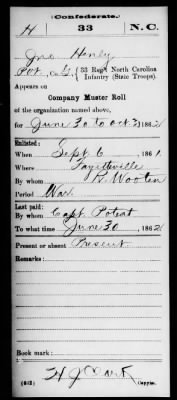 (Confederate.)
H 33 N.C.
Jno Henly
Pvt, Co. G, 33 Reg't North Carolina
Infantry (State Troops).
Appears on
Company Muster Roll
of the organization named above,
for June 30 to Oct 31, 1862
Enlisted:
When Sept 6, 1861.
Where Fayetteville
By whom R. Wooten
Period War
Last paid:
By whom Capt. Poteat
To what time June 30, 1862
Present or absent Present
Remarks:
Book mark:
H J Mark
(642) Copyist.